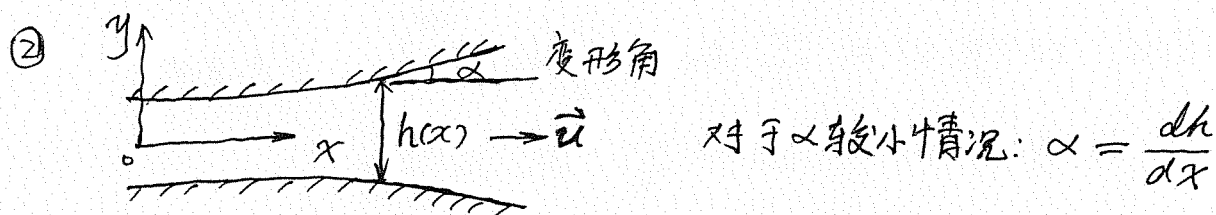 ②
y
α 变形角
h(x) → u⃗
x
o
对于α较小情况: α = dh/dx